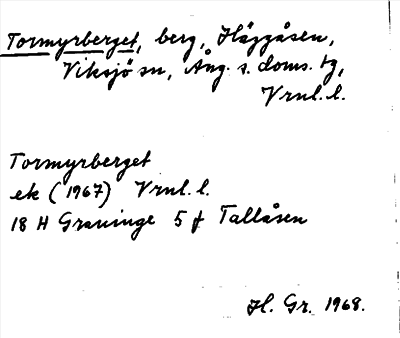 Tormyrberget, berg, Häggåsen,
Viksjö sn, Ång. s. doms. tg,
Vrnl. l.
Tormyrberget
ek (1967) Vrnl. l.
18 H Graninge 5 f Tallåsen
H. Gr. 1968.